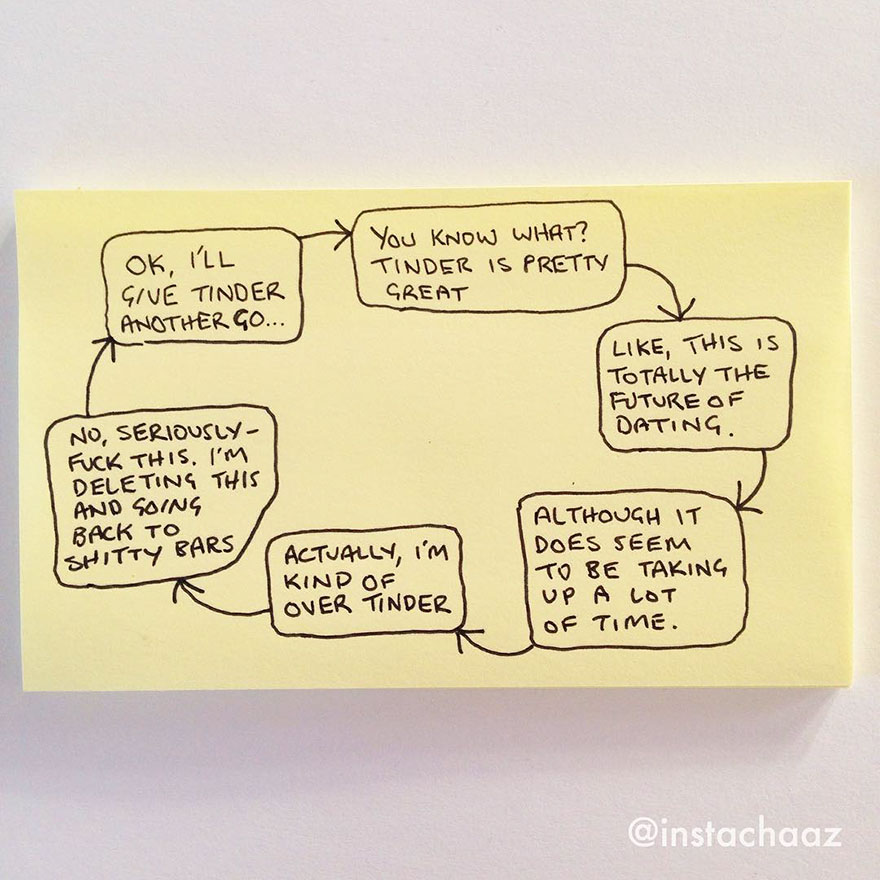 OK, I'LL
GIVE TINDER
ANOTHER GO...
YOU KNOW WHAT?
TINDER IS PRETTY
GREAT
LIKE, THIS IS
TOTALLY THE
FUTURE OF
DATING.
ALTHOUGH IT
DOES SEEM
TO BE TAKING
UP A LOT
OF TIME.
ACTUALLY, I'M
KIND OF
OVER TINDER
NO, SERIOUSLY-
FUCK THIS. I'M
DELETING THIS
AND GOING
BACK TO
SHITTY BARS
@instachaaz